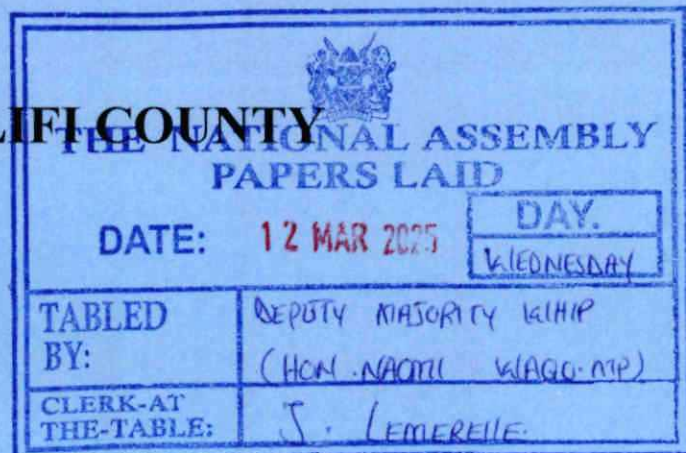 LIFI COUNTY
THE NATIONAL ASSEMBLY
PAPERS LAID
DATE: 12 MAR 2025
DAY.
WEDNESDAY
TABLED BY:
DEPUTY MAJORITY WHIP
(HON. NAOMI WAQO. MP)
CLERK-AT THE-TABLE:
J. LEMERELLE.